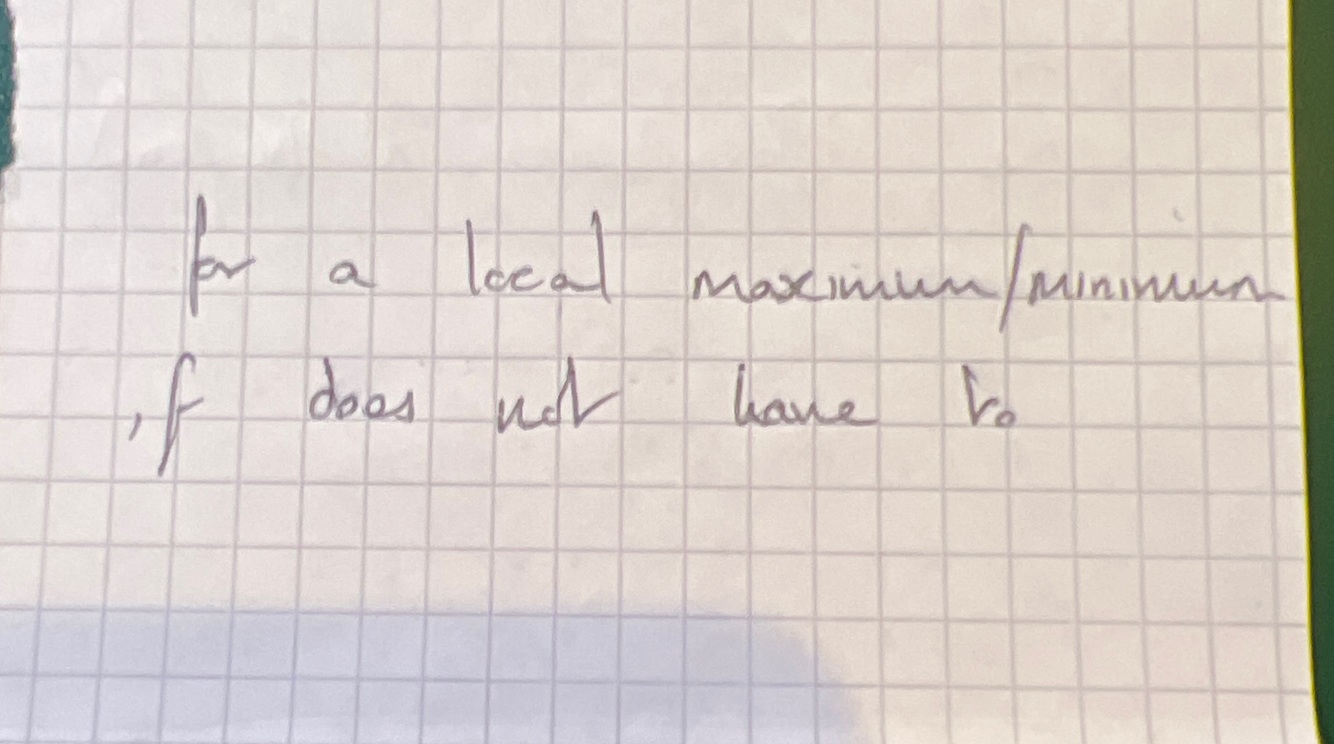 for a local maximum/minimum
, f does not have to